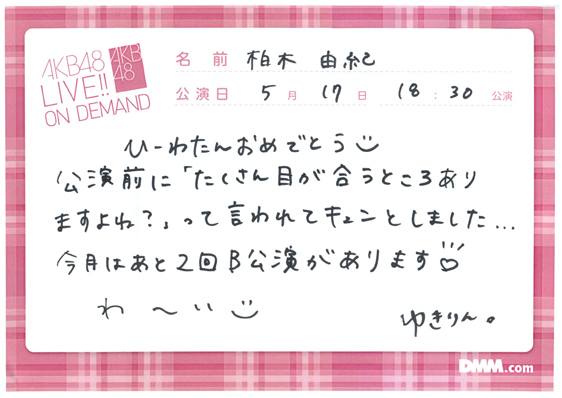 AKB48
LIVE!!
ON DEMAND
AKB
48
名前 柏木 由紀
公演日 5月 17日 18:30 公演
ひーわたんおめでとう
公演前に「たくさん目が合うところあり
ますよね?」って言われてキュンとしました...
今月はあと2回B公演があります
わ〜い
ゆきりん。
DMM.com